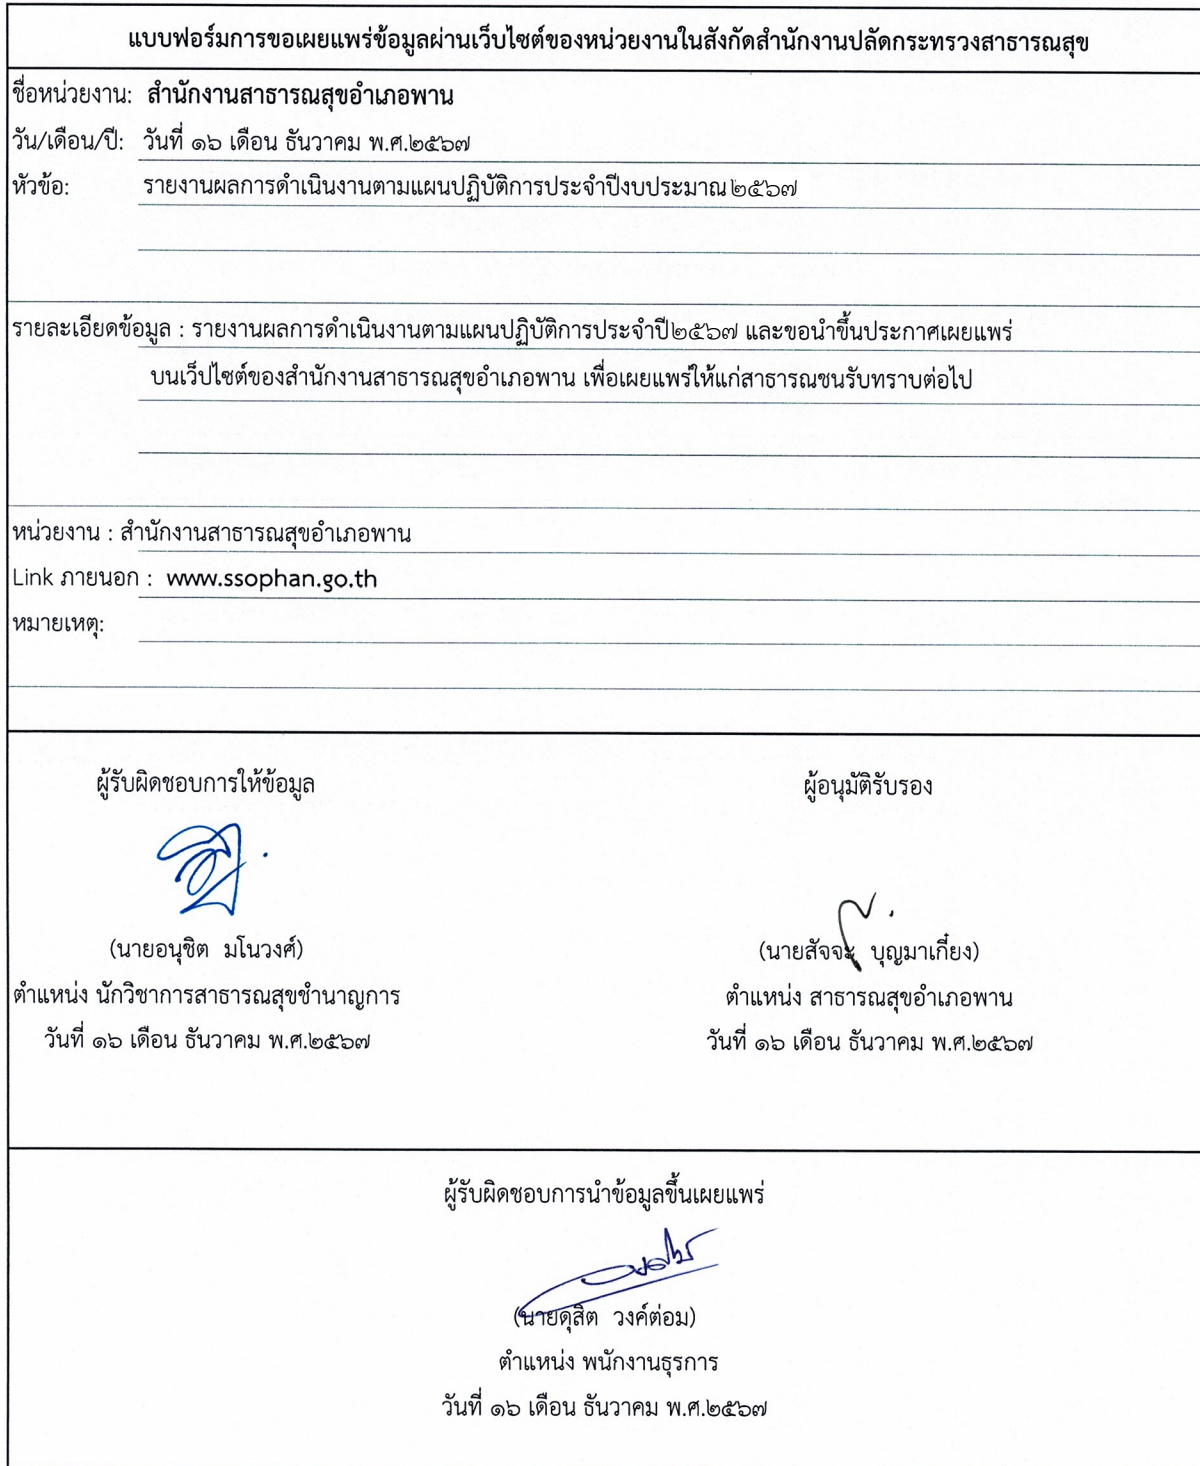 แบบฟอร์มการขอเผยแพร่ข้อมูลผ่านเว็บไซต์ของหน่วยงานในสังกัดสำนักงานปลัดกระทรวงสาธารณสุข
ชื่อหน่วยงาน: สำนักงานสาธารณสุขอำเภอพาน
วัน/เดือน/ปี: วันที่ ๑๖ เดือน ธันวาคม พ.ศ.๒๕๖๗
หัวข้อ: รายงานผลการดำเนินงานตามแผนปฏิบัติการประจำปีงบประมาณ๒๕๖๗
รายละเอียดข้อมูล : รายงานผลการดำเนินงานตามแผนปฏิบัติการประจำปี๒๕๖๗ และขอนำขึ้นประกาศเผยแพร่
บนเว็บไซต์ของสำนักงานสาธารณสุขอำเภอพาน เพื่อเผยแพร่ให้แก่สาธารณชนรับทราบต่อไป
หน่วยงาน : สำนักงานสาธารณสุขอำเภอพาน
Link ภายนอก : www.ssophan.go.th
หมายเหตุ:
ผู้รับผิดชอบการให้ข้อมูล
(นายอนุชิต มโนวงศ์)
ตำแหน่ง นักวิชาการสาธารณสุขชำนาญการ
วันที่ ๑๖ เดือน ธันวาคม พ.ศ.๒๕๖๗
ผู้อนุมัติรับรอง
(นายสัจจะ บุญมาเกี๋ยง)
ตำแหน่ง สาธารณสุขอำเภอพาน
วันที่ ๑๖ เดือน ธันวาคม พ.ศ.๒๕๖๗
ผู้รับผิดชอบการนำข้อมูลขึ้นเผยแพร่
(นายดุสิต วงค์ต่อม)
ตำแหน่ง พนักงานธุรการ
วันที่ ๑๖ เดือน ธันวาคม พ.ศ.๒๕๖๗